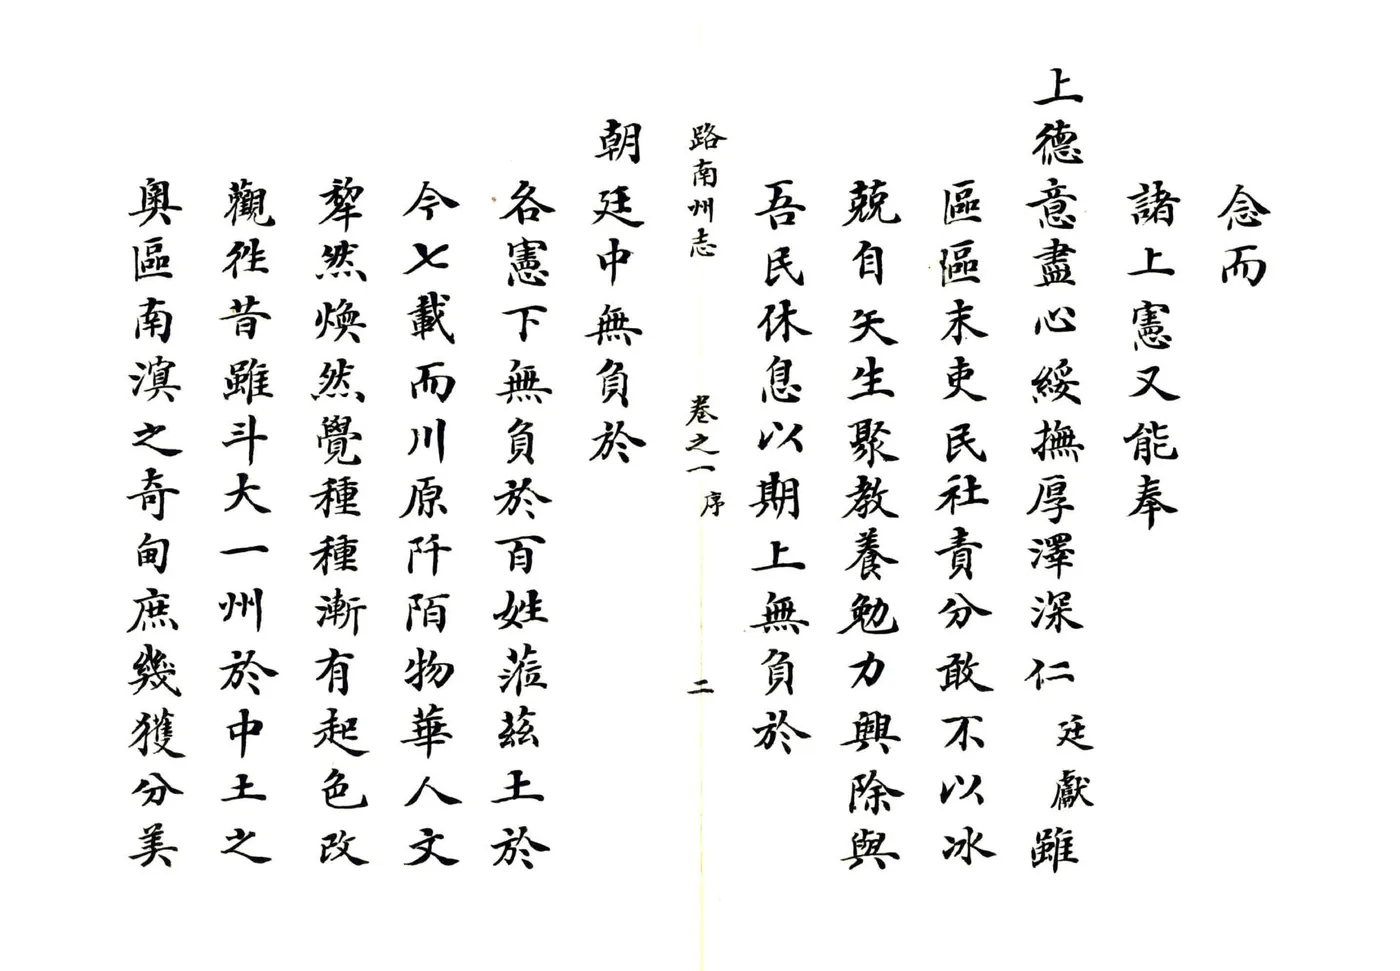 念而
諸上憲又能奉
上德意盡心綏撫厚澤深仁廷獻雖
區區末吏民社責分敢不以冰
兢自矢生聚教養勉力興除與
吾民休息以期上無負於
路南州志 卷之一 序 二
朝廷中無負於
各憲下無負於百姓蒞茲土於
今七載而川原阡陌物華人文
犂然煥然覺種種漸有起色改
觀徃昔雖斗大一州於中土之
奧區南滇之奇甸庶幾獲分美